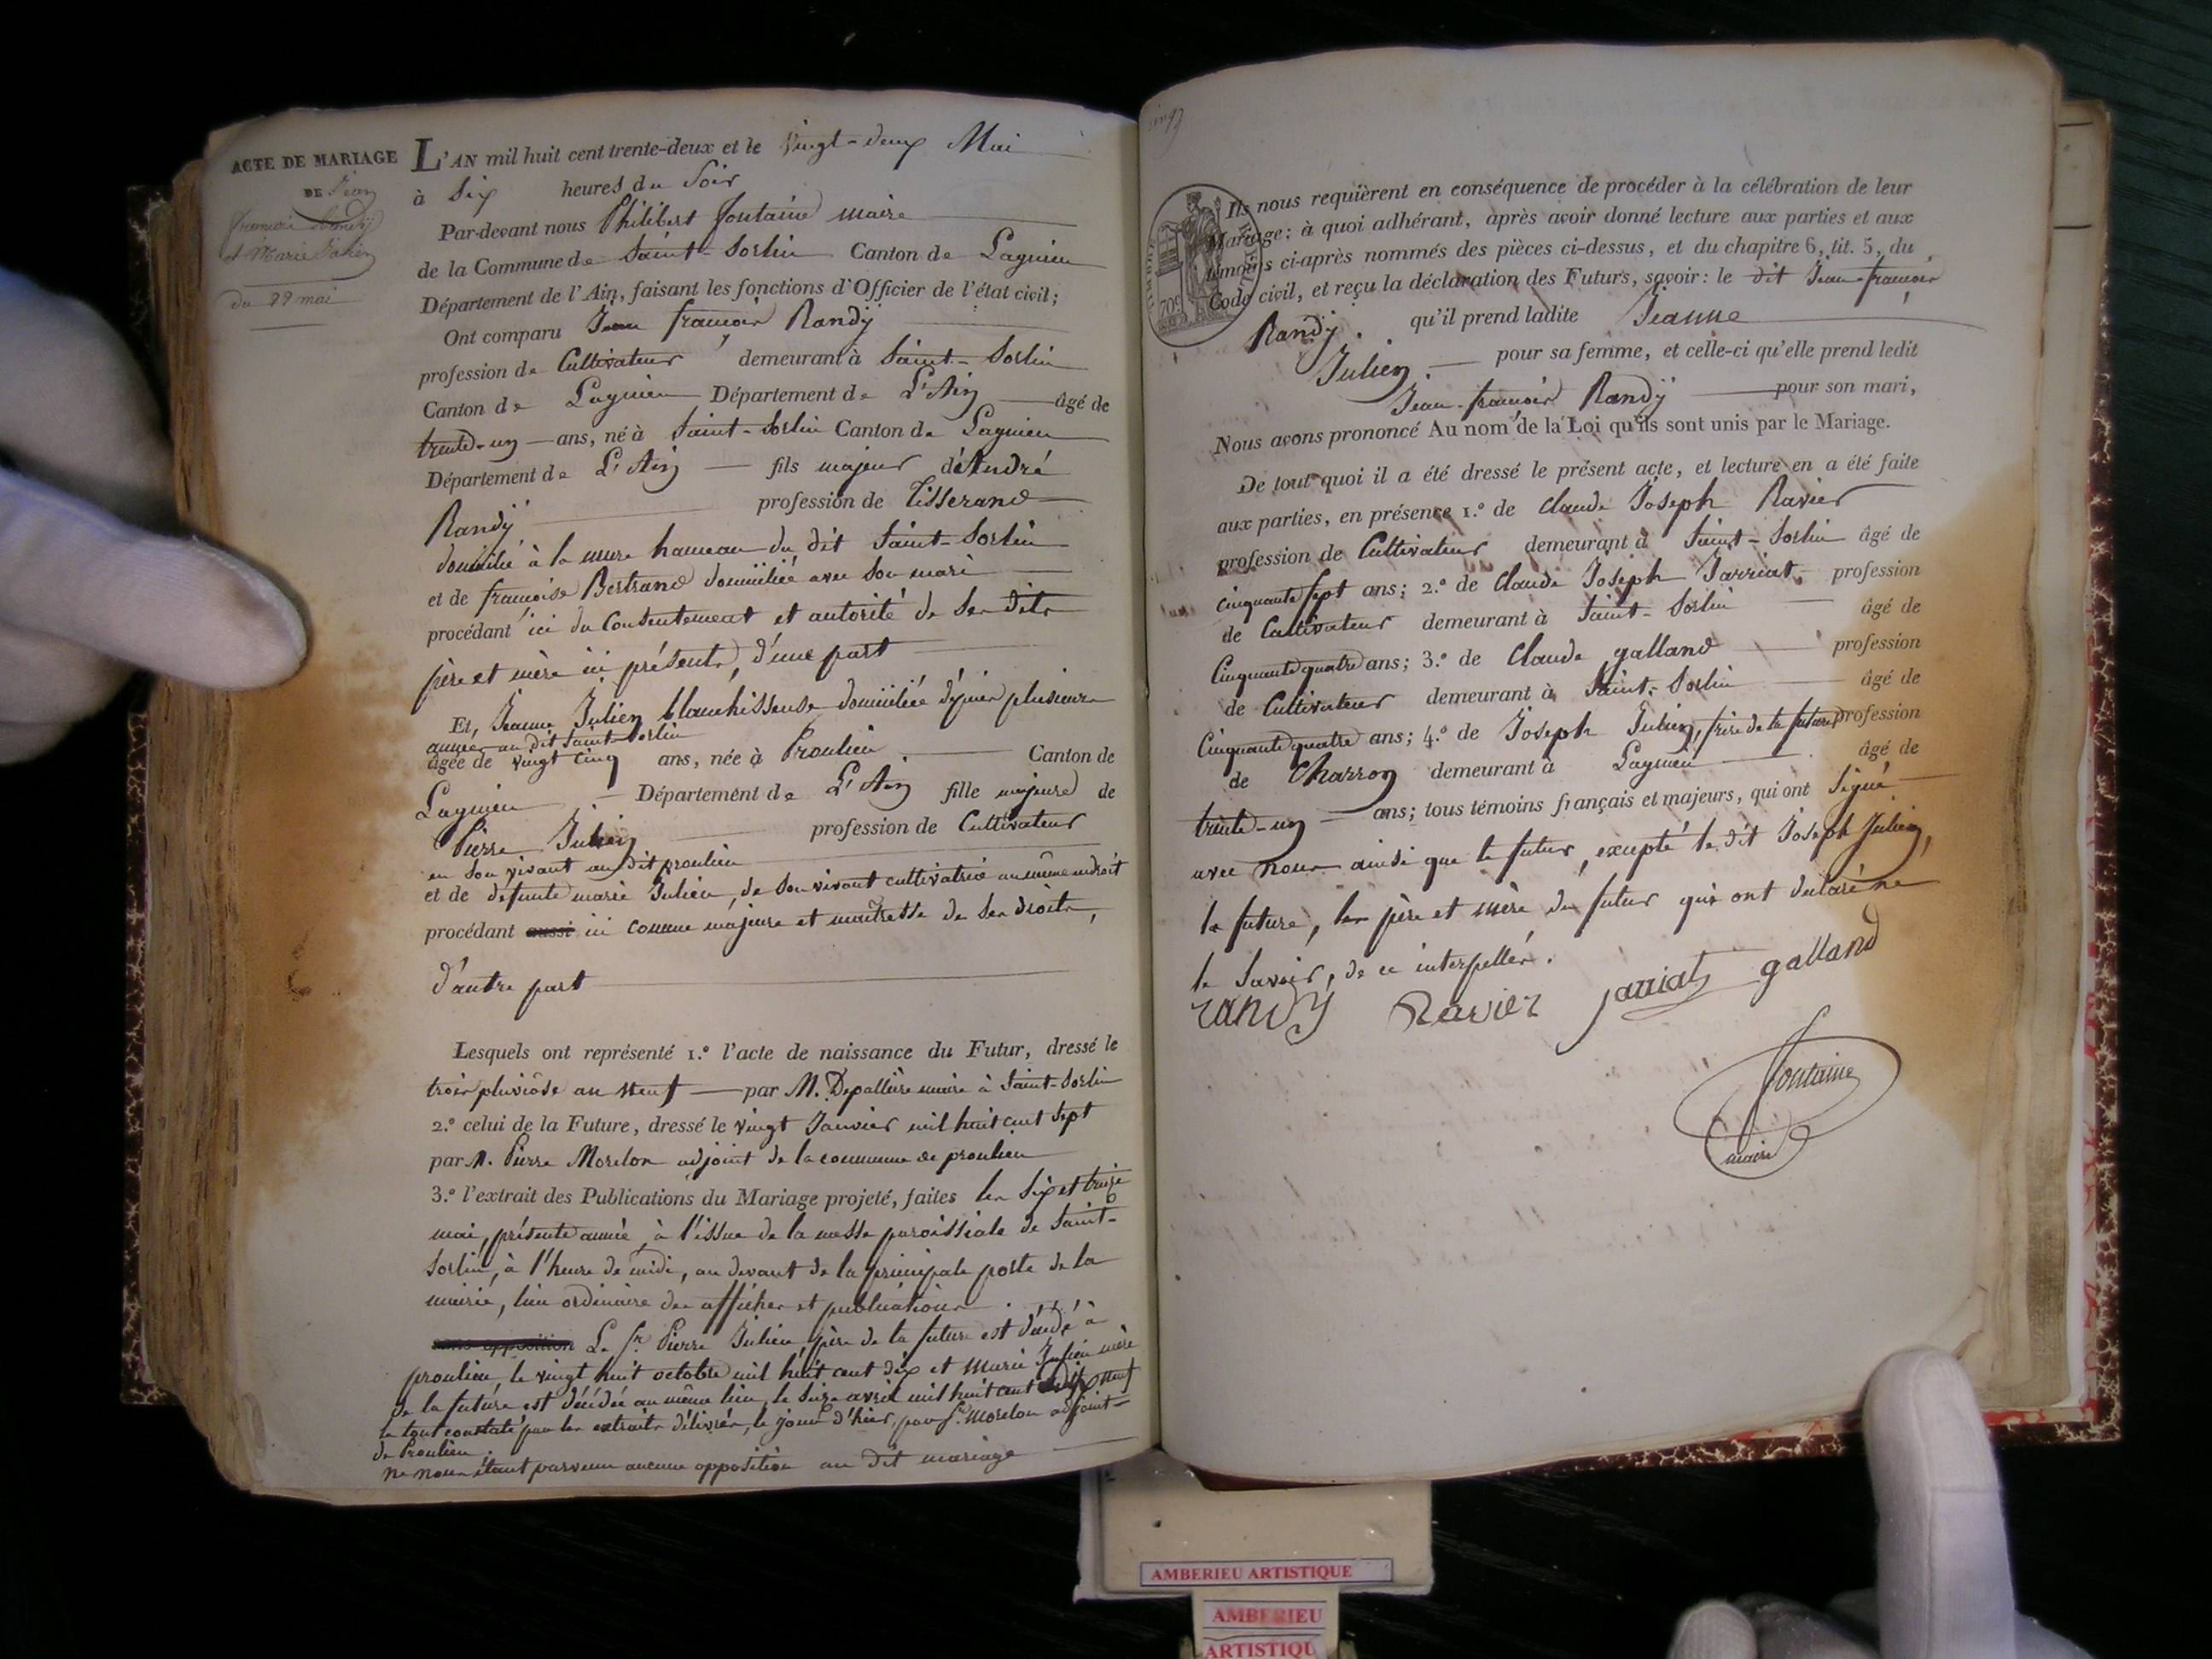 ACTE DE MARIAGE
DE Jean
françois Randy
et Marie Julien
du 22 mai
L'AN mil huit cent trente-deux et le vingt-deux Mai
à Six heures du Soir
Par-devant nous Philibert fontaine maire
de la Commune de Saint-Sorlin Canton de Lagnieu
Département de l'Ain, faisant les fonctions d'Officier de l'état civil;
Ont comparu Jean françois Randy
profession de Cultivateur demeurant à Saint-Sorlin
Canton de Lagnieu Département de L'Ain âgé de
trente-un ans, né à Saint-Sorlin Canton de Lagnieu
Département de L'Ain fils majeur d'André
Randy profession de Tisserand
domicilié à la mure hameau du dit Saint-Sorlin
et de françoise Bertrand domiciliée avec son mari
procédant ici du Consentement et autorité de ses dits
père et mère ici présents, d'une part
Et, Jeanne Julien blanchisseuse domiciliée depuis plusieurs
années au dit Saint-Sorlin
âgée de vingt cinq ans, née à Proulieu Canton de
Lagnieu Département de L'Ain fille majeure de
Pierre Julien profession de Cultivateur
en son vivant au dit proulieu
et de défunte marie Julien, de son vivant cultivatrice au même endroit
procédant aussi ici comme majeure et maîtresse de ses droits,
d'autre part
Lesquels ont représenté 1.º l'acte de naissance du Futur, dressé le
trois pluviôse an neuf par M. Depallière maire à Saint-Sorlin
2.º celui de la Future, dressé le vingt Janvier mil huit cent sept
par M. Pierre Morelon adjoint de la commune de proulieu
3.º l'extrait des Publications du Mariage projeté, faites les Six et treize
mai, présente année, à l'issue de la messe paroissiale de Saint-
Sorlin, à l'heure de midi, au devant de la principale porte de la
mairie, lieu ordinaire des affiches et publications.
sans opposition Le Sr. Pierre Julien, père de la future est décédé à
proulieu, le vingt huit octobre mil huit cent dix et marie Julien mère
de la future est décédée au même lieu, le seize avril mil huit cent dix neuf
le tout constaté par les extraits délivrés, le jour d'hier, par Sr. Morelon adjoint
de Proulieu.
ne nous étant parvenu aucune opposition au dit mariage
Ils nous requièrent en conséquence de procéder à la célébration de leur
Mariage: à quoi adhérant, après avoir donné lecture aux parties et aux
témoins ci-après nommés des pièces ci-dessus, et du chapitre 6, tit. 5, du
Code civil, et reçu la déclaration des Futurs, savoir: le dit Jean-françois
Randy. qu'il prend ladite Jeanne
Julien. pour sa femme, et celle-ci qu'elle prend ledit
Jean-françois Randy pour son mari,
Nous avons prononcé Au nom de la Loi qu'ils sont unis par le Mariage.
De tout quoi il a été dressé le présent acte, et lecture en a été faite
aux parties, en présence 1.º de Claude Joseph Ravier
profession de Cultivateur demeurant à Saint-Sorlin âgé de
cinquante sept ans; 2.º de Claude Joseph Jarriat, profession
de Cultivateur demeurant à Saint-Sorlin âgé de
Cinquante quatre ans; 3.º de Claude galland profession
de Cultivateur demeurant à Saint-Sorlin âgé de
Cinquante quatre ans; 4.º de Joseph Julien, frère de la future profession
de Charron demeurant à Lagnieu âgé de
trente-un ans; tous témoins français et majeurs, qui ont Signé
avec nous ainsi que le futur, excepté le dit Joseph Julien,
la future, les père et mère du futur qui ont déclaré ne
le Savoir, de ce interpellés.
randy Ravier jarriat galland
fontaine
maire
70c
AMBERIEU ARTISTIQUE
AMBERIEU
ARTISTIQU